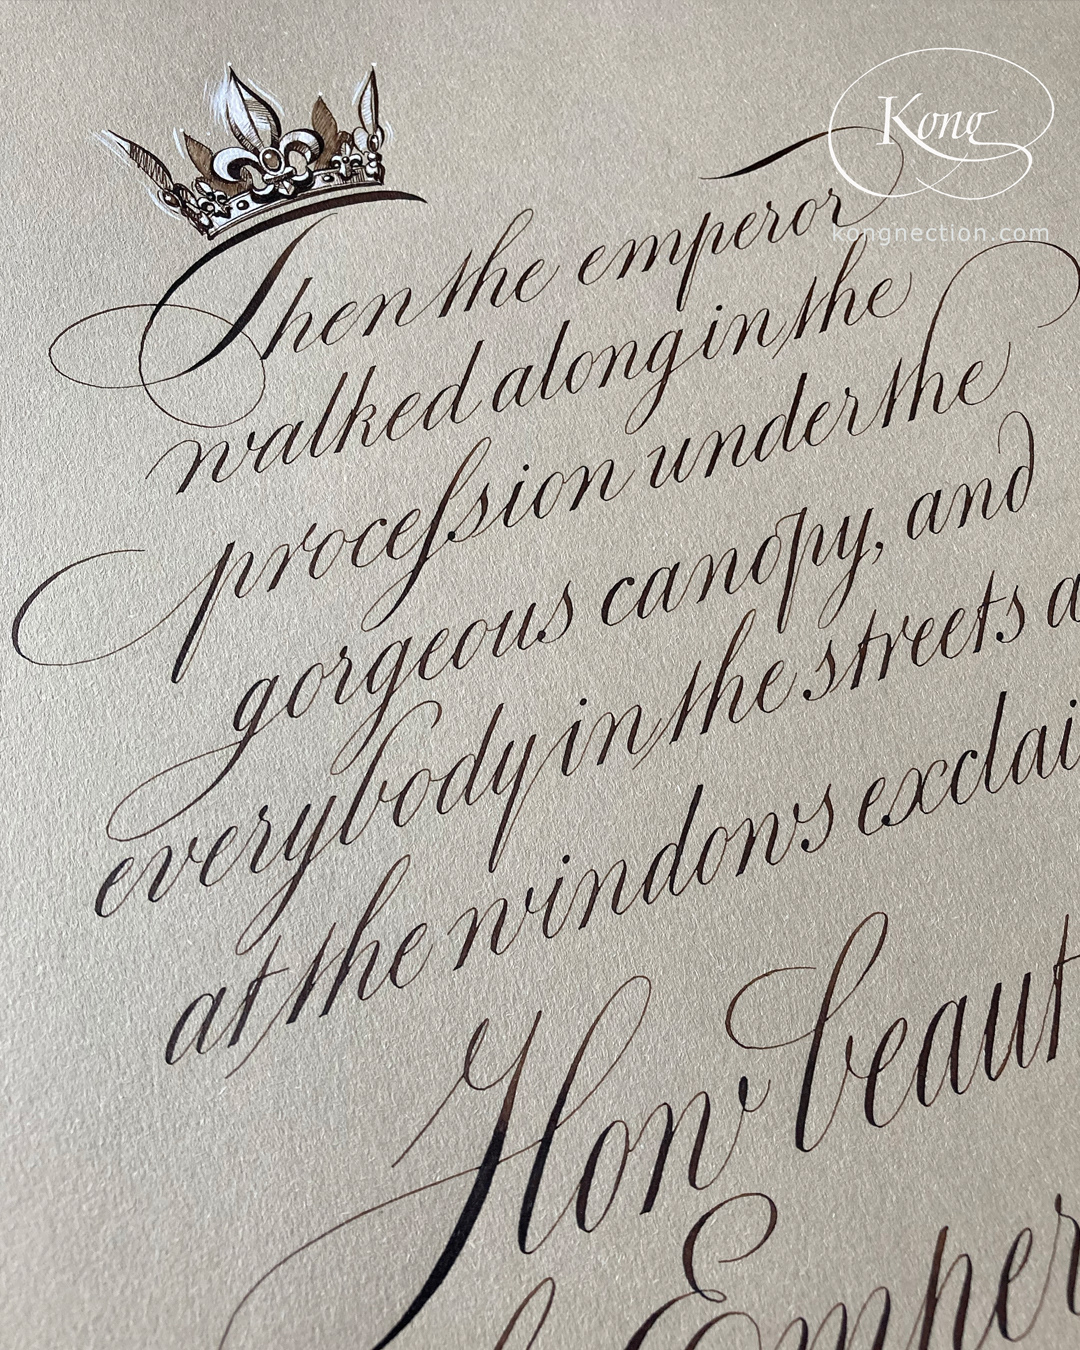 Kong
kongnection.com
Then the emperor
walked along in the
proceſsion under the
gorgeous canopy, and
everybody in the streets a
at the windows exclai
How beaut
Emper